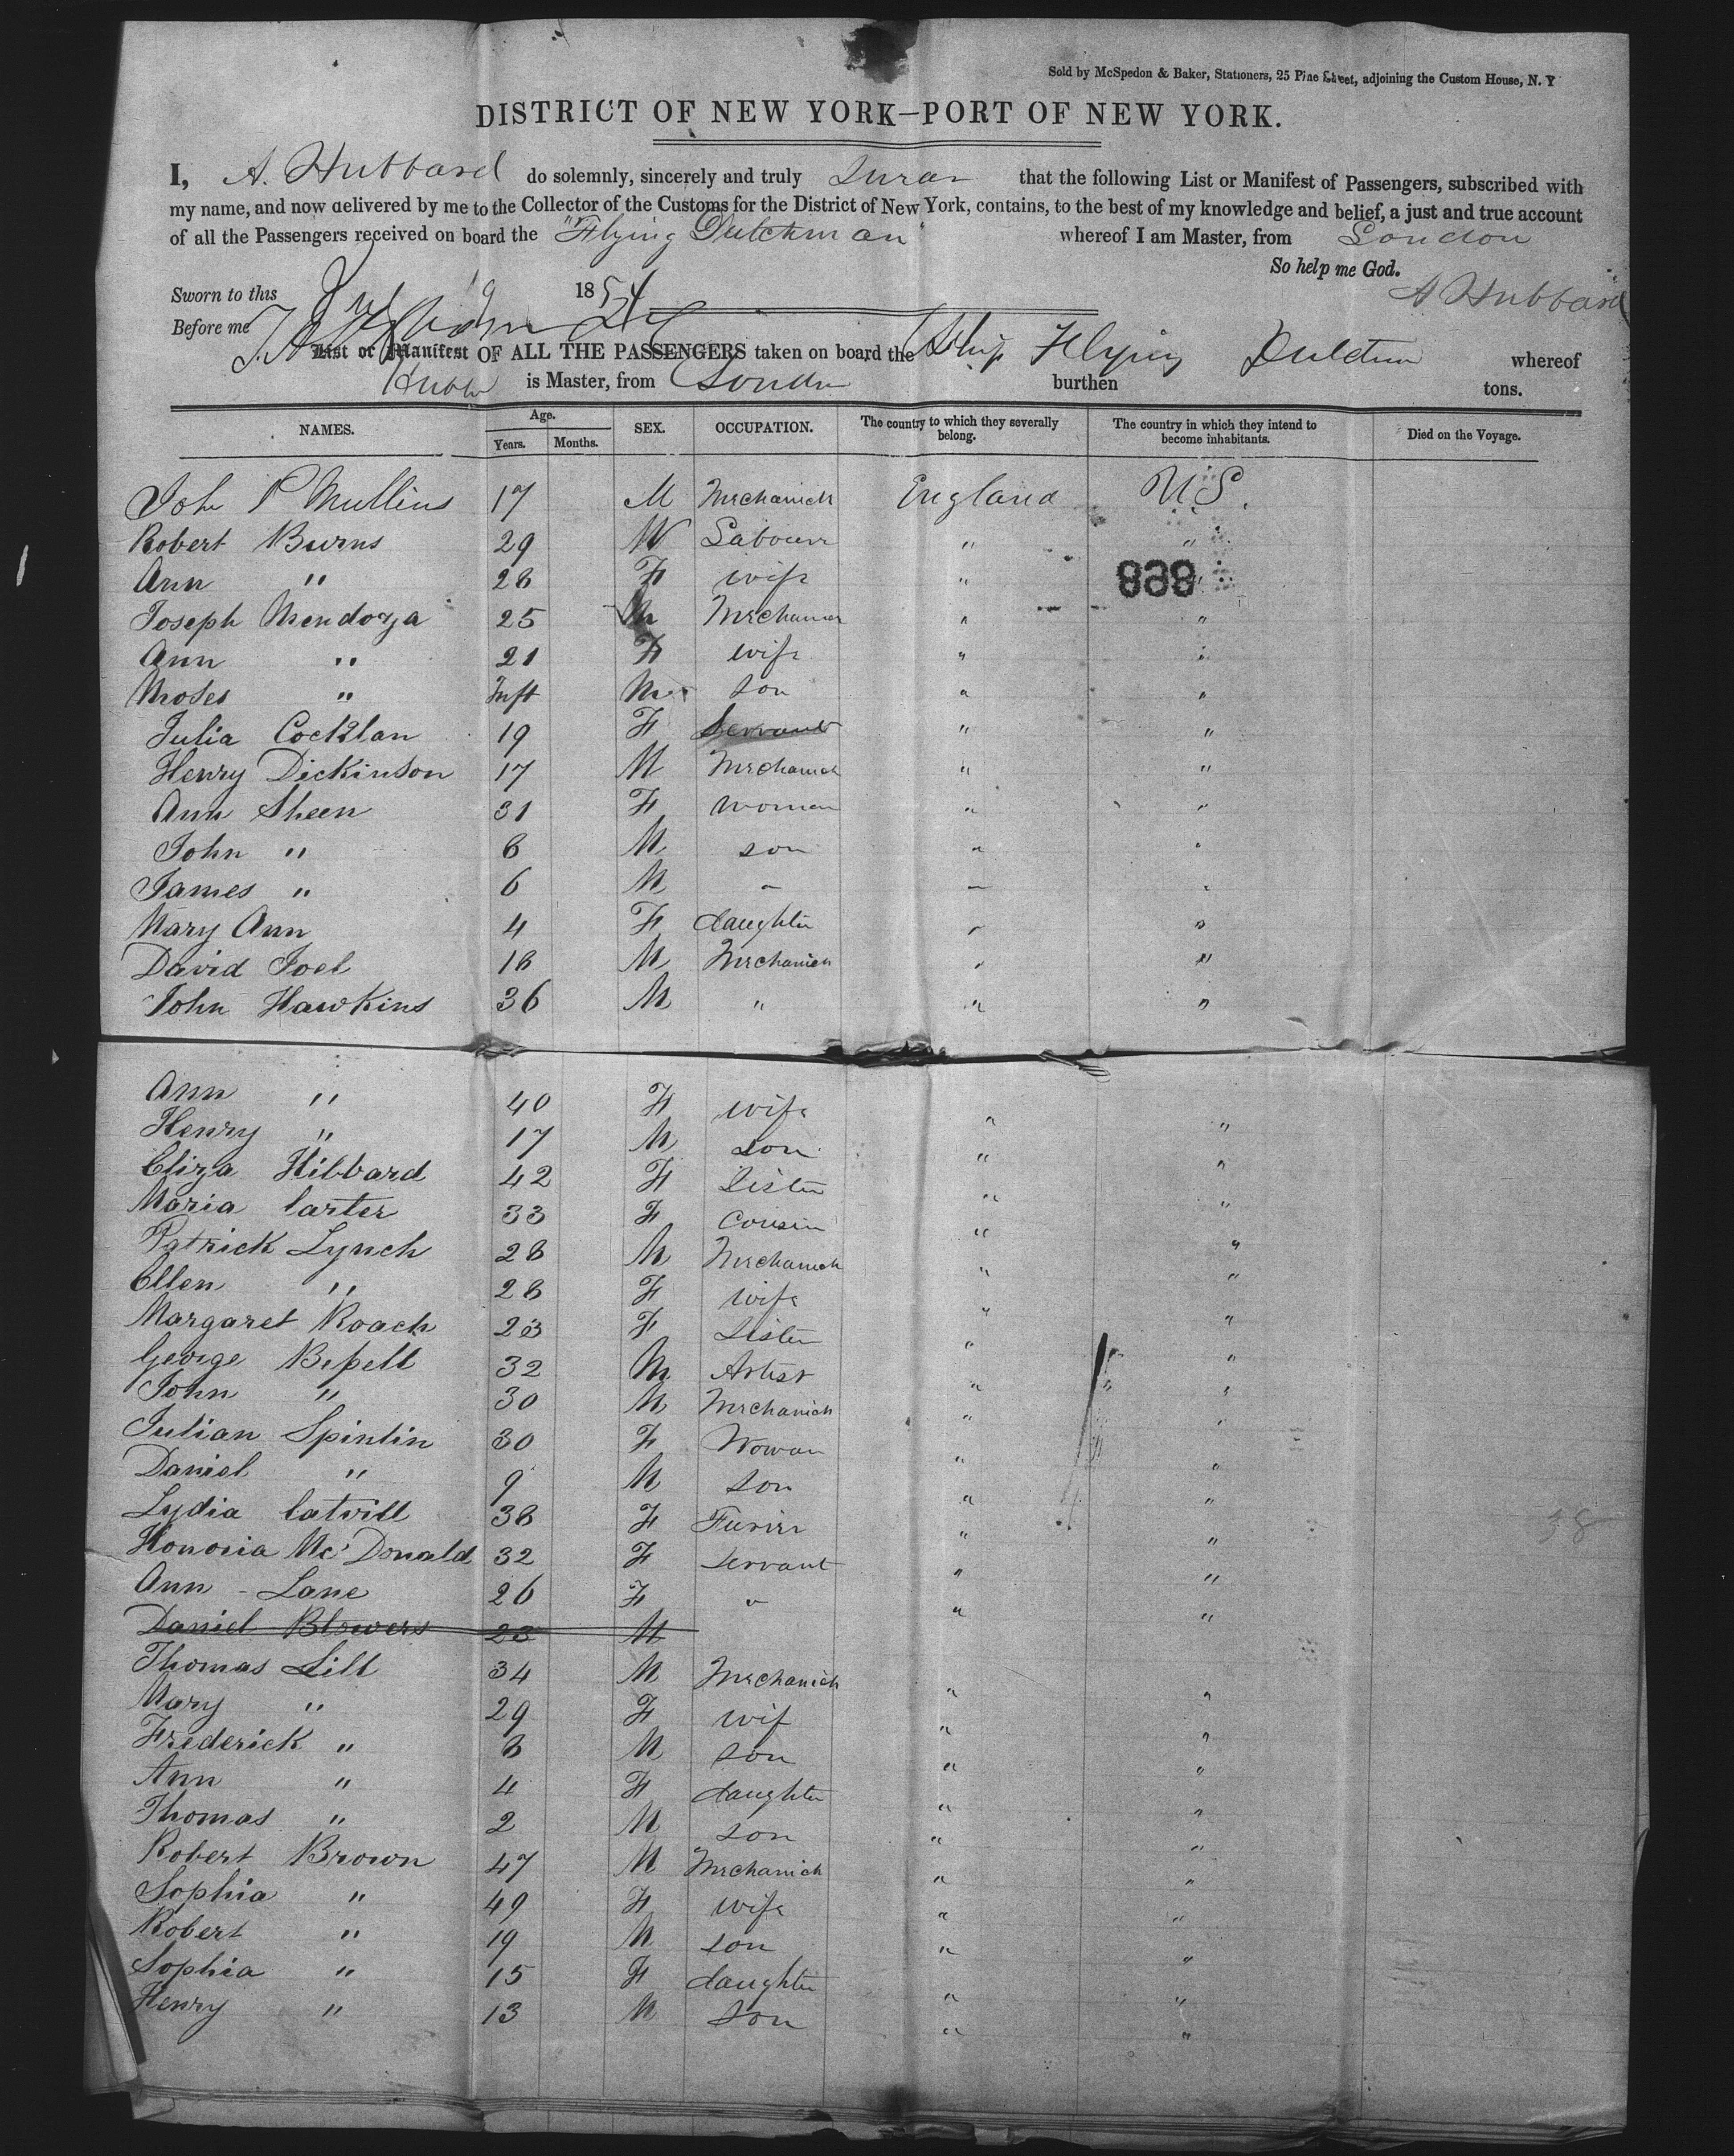 Sold by McSpedon & Baker, Stationers, 25 Pine Street, adjoining the Custom House, N. Y
DISTRICT OF NEW YORK—PORT OF NEW YORK.
I, A. Hubbard do solemnly, sincerely and truly Swear that the following List or Manifest of Passengers, subscribed with
my name, and now delivered by me to the Collector of the Customs for the District of New York, contains, to the best of my knowledge and belief, a just and true account
of all the Passengers received on board the "Flying Dutchman" whereof I am Master, from London
So help me God.
Sworn to this 9 1854 A Hubbard
Before me
List or Manifest OF ALL THE PASSENGERS taken on board the Ship Flying Dutchm whereof
Hubb is Master, from London burthen tons.
NAMES. Age. Years. Months. SEX. OCCUPATION. The country to which they severally belong. The country in which they intend to become inhabitants. Died on the Voyage.
John P Mullins 17 M Mechanick England U S.
Robert Burns 29 M Labourr " "
Ann " 28 F wife " "
898
Joseph Mendoza 25 M Mechanick " "
Ann " 21 F wife " "
Moses " Inft M son " "
Julia Cocklan 19 F Servant " "
Henry Dickinson 17 M Mechanick " "
Ann Sheen 31 F woman " "
John " 8 M son " "
James " 6 M " " "
Mary Ann 4 F daughter " "
David Joel 18 M Mechanick " "
John Hawkins 36 M " " "
Ann " 40 F wife " "
Henry " 17 M son " "
Eliza Hibbard 42 F Sister " "
Maria Carter 33 F Cousin " "
Patrick Lynch 28 M Mechanick " "
Ellen " 28 F wife " "
Margaret Roach 23 F Sister " "
George Bepell 32 M Artist " "
John " 30 M Mechanick " "
Julian Spintin 30 F Woman " "
Daniel " 9 M son " "
Lydia Catvill 38 F Furier " "
38
Honoria McDonald 32 F servant " "
Ann - Lane 26 F " " "
Daniel Blowers 23 M
Thomas Lill 34 M Mechanick " "
Mary " 29 F wif " "
Frederick " 8 M son " "
Ann " 4 F daughter " "
Thomas " 2 M son " "
Robert Brown 47 M Mechanick " "
Sophia " 49 F wife " "
Robert " 19 M son " "
Sophia " 15 F daughter " "
Henry " 13 M son " "